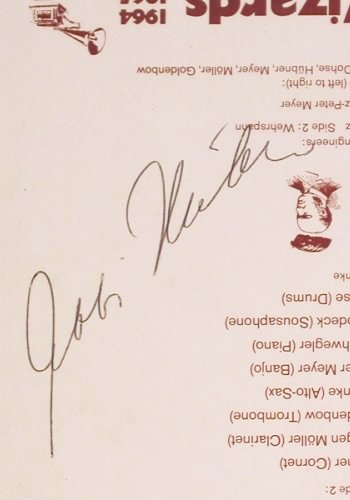 de 2:
ner (Cornet)
gen Möller (Clarinet)
denbow (Trombone)
nke (Alto-Sax)
er Meyer (Banjo)
hwegler (Piano)
odeck (Sousaphone)
se (Drums)
nke
ngineers:
z Side 2: Wehrspann
z-Peter Meyer
(left to right):
Dohse, Hübner, Meyer, Möller, Goldenbow
izards 1964